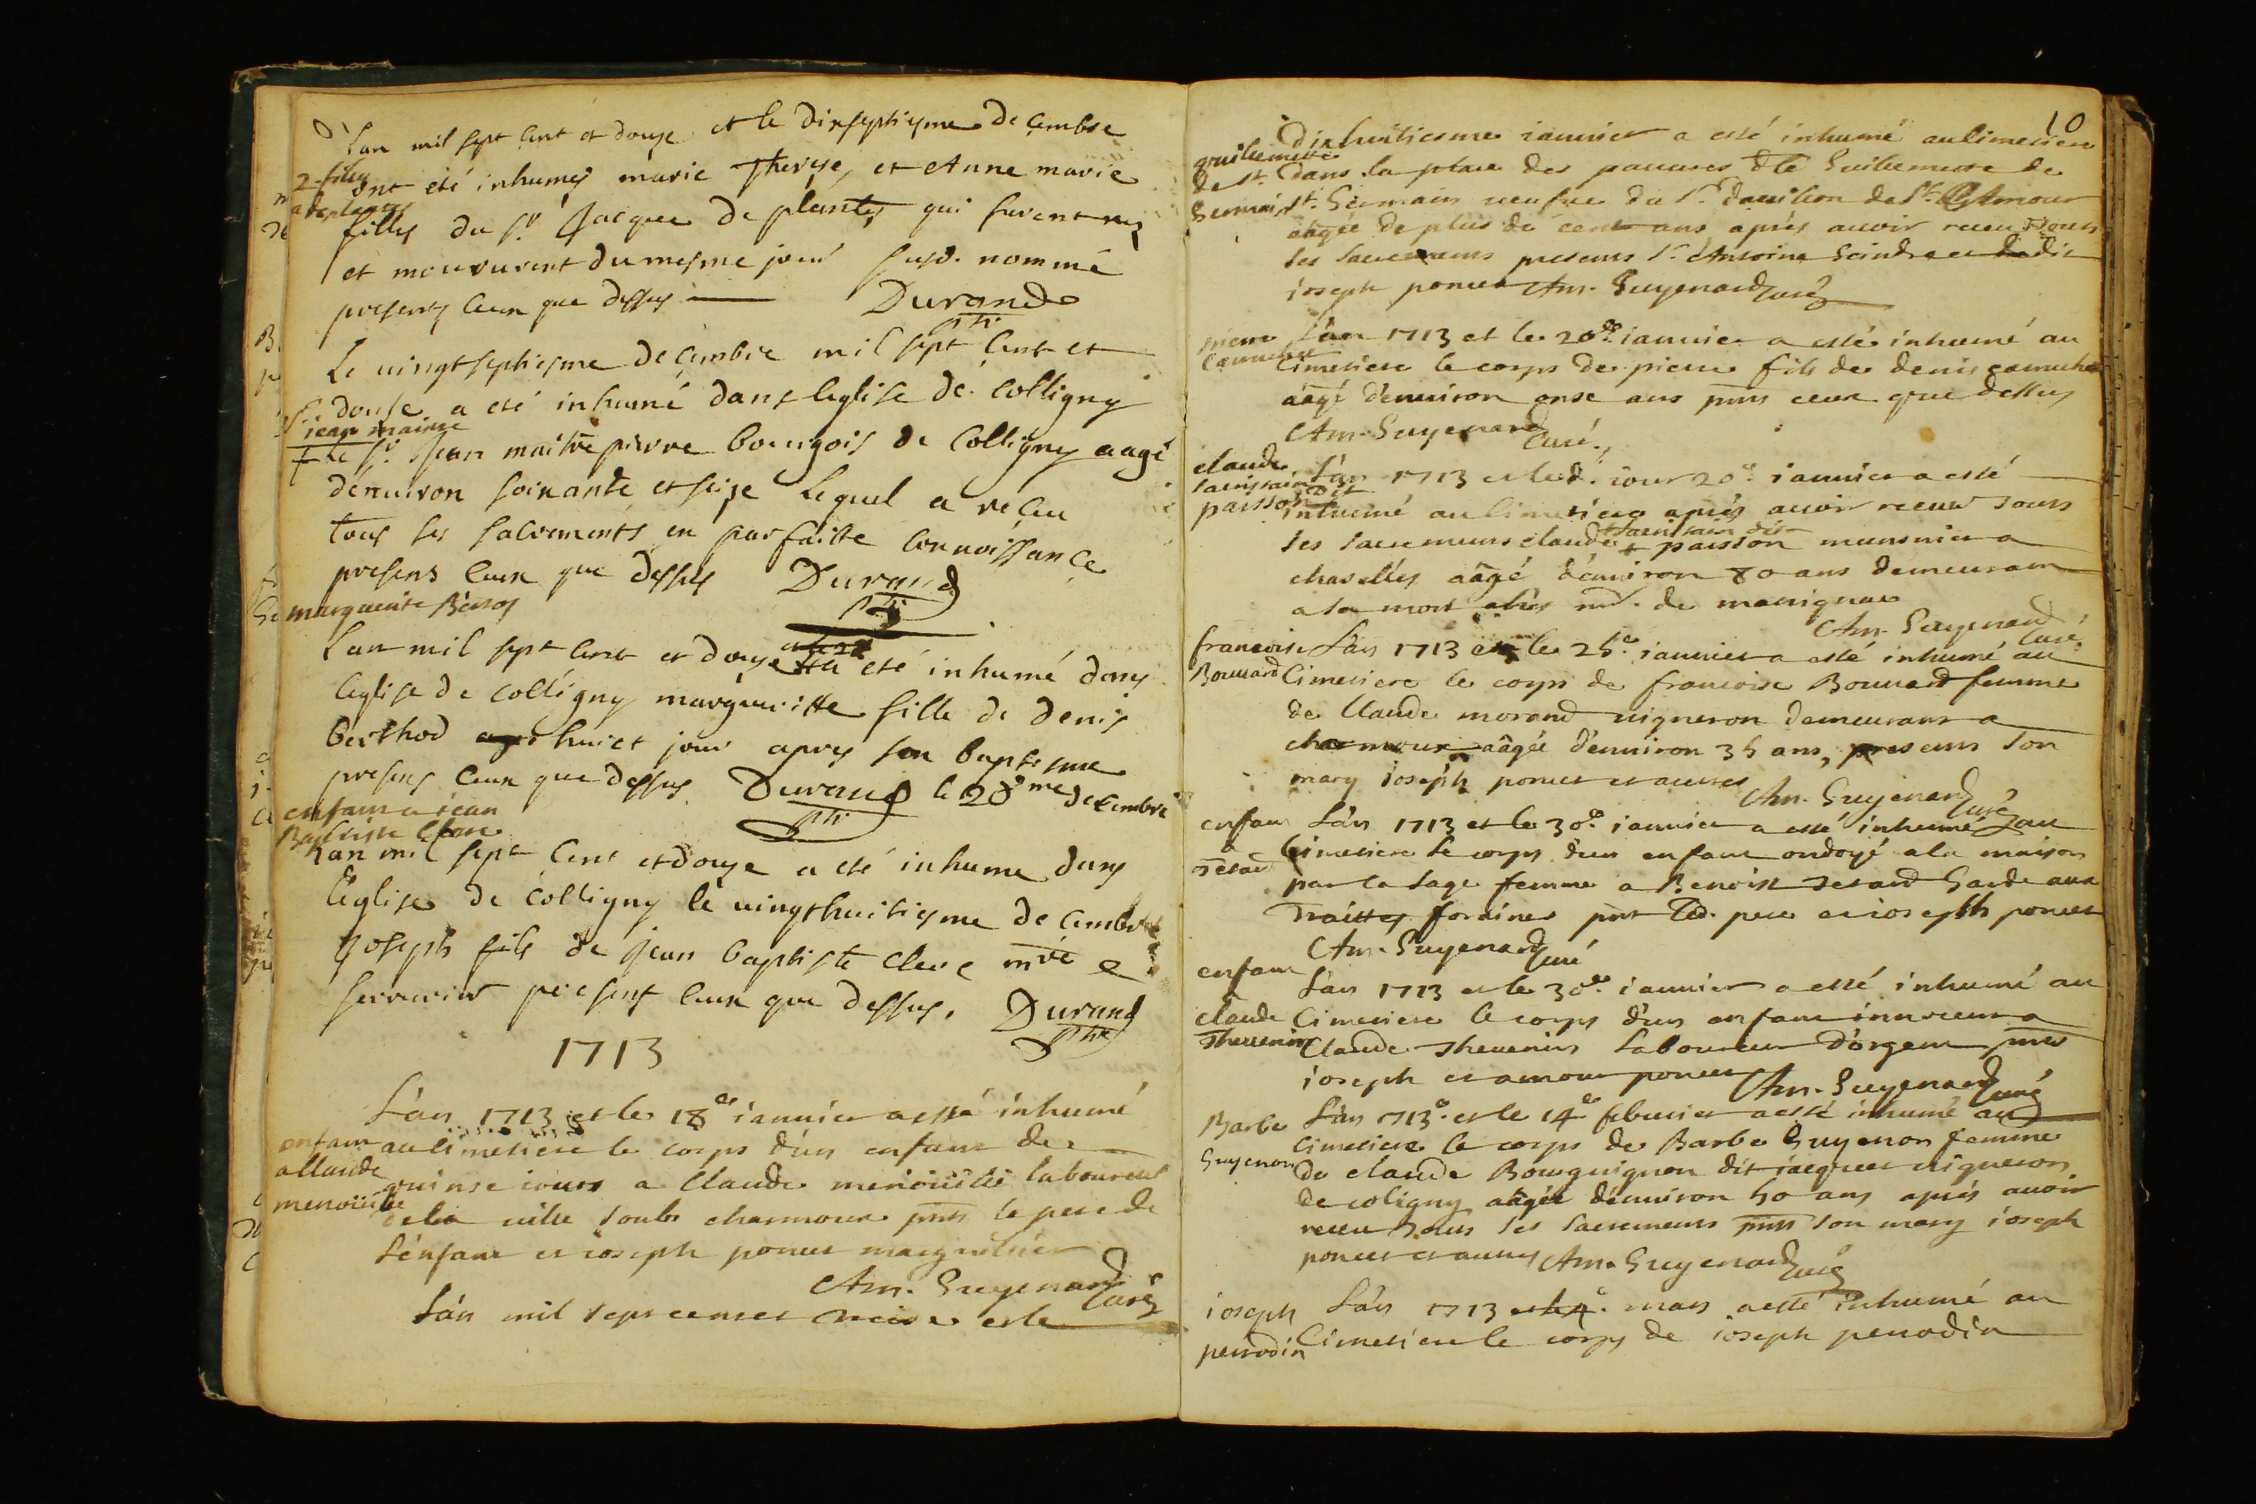 L'an mil sept cent et douze et le dixseptiesme decembre
2 filles
ont été inhumés marie Therese, et Anne marie
a deplantes
filles du sr. Jacque de plantes qui furent nes
et moururent du mesme jour susd. nommé
presents ceux que dessus Durand
ptre
Le vingtseptiesme decembre mil sept cent et
douse a été inhumé dans leglise de colligny
sr. jean maitre
Le sr. Jean maitre pierre bourgois de Colligny aagé
denuiron soixante et seize Lequel a reçeu
tous ses sacrements en parfaitte connoissance
presens ceux que dessus Durand
ptre
marguerite
L'an mil sept cent et douze a été inhumé dans
leglise de colligny margueritte fille de denis
berthod huict jour apres son baptesme
presens ceux que dessus Durand le 28me decembre
ptre
enfant a jean
Baptiste Clerc
Lan mil sept cent et douze a été inhume dans
l'eglise de Colligny le vingthuitiesme decembre
Joseph fils de jean baptiste Clerc mre
serrurier presens ceux que dessus. Durand
ptre
1713
L'an 1713 et le 18e ianuier a esté inhumé
enfant
au cimetiere le corps d'un enfant de
a Claude
quinse iours a Claude menouillie laboureur
menouillie
dela ville soubs charmoux pnts le pere de
l'enfant et ioseph poncet marguillier
Am. Guyenard Curé
L'an mil sept cents et treise et le
10
dixhuitiesme ianuier a esté inhumé au cimetiere
guillemette
de St. dans la place des pauures dlle Guillemette de
Germain St. Germain veufue du sr. dauilion de St. Amour
aagée de plus de cent ans aprés auoir receu tous
ses sacremens presens sr. Antoine Geindre et
ioseph poncet Am. Guyenard curé
pierre L'an 1713 et le 20e ianuier a esté inhumé au
cimetiere le corps de pierre fils de denis
aagé d'enuiron onse ans pnts ceux que dessus
Am. Guyenard Curé.
claude L'an 1713 et led. iour 20e ianuier a esté
dit
paisson inhumé au cimetiere aprés auoir receu tous
ses sacremens claude + paission meusnier a
dit
chaselles aagé d'enuiron 80 ans demeurant
a sa mort chés mr. de marignac
Am. Guyenard Curé
francoise L'an 1713 et le 25e ianuier a esté inhumé au
Bouuard Cimetiere le corps de francoise Bouuard femme
de Claude morand vigneron demeurant a
charmoux aagée d'enuiron 35 ans, presens son
mary ioseph poncet et autres
Am. Guyenard Curé
enfant L'an 1713 et le 30e ianuier a esté inhumé au
a cimetiere le corps d'un enfant ondoyé a la maison
par la sage femme a Benoist Garde aux
Traittes foraines pnt led. pere et ioseph poncet
Am. Guyenard curé
enfant L'an 1713 et le 30e ianuier a esté inhumé au
a
claude Cimetiere le corps d'un enfant innocent a
Theuenin Claude Theuenin laboureur d'orgent pnts
ioseph et amour poncet Am. Guyenard curé
Barbe L'an 1713 et le 14e feburier a esté inhumé au
cimetiere le corps de Barbe Guyenon femme
Guyenon de claude Bourguignon dit iacquet vigneron
de coligny aagée d'enuiron 50 ans aprés auoir
receu tous ses sacremens pnts son mary ioseph
poncet et autres Am. Guyenard curé
ioseph L'an 1713 et le 4e mars a esté inhumé au
perrodin Cimetiere le corps de ioseph perrodin